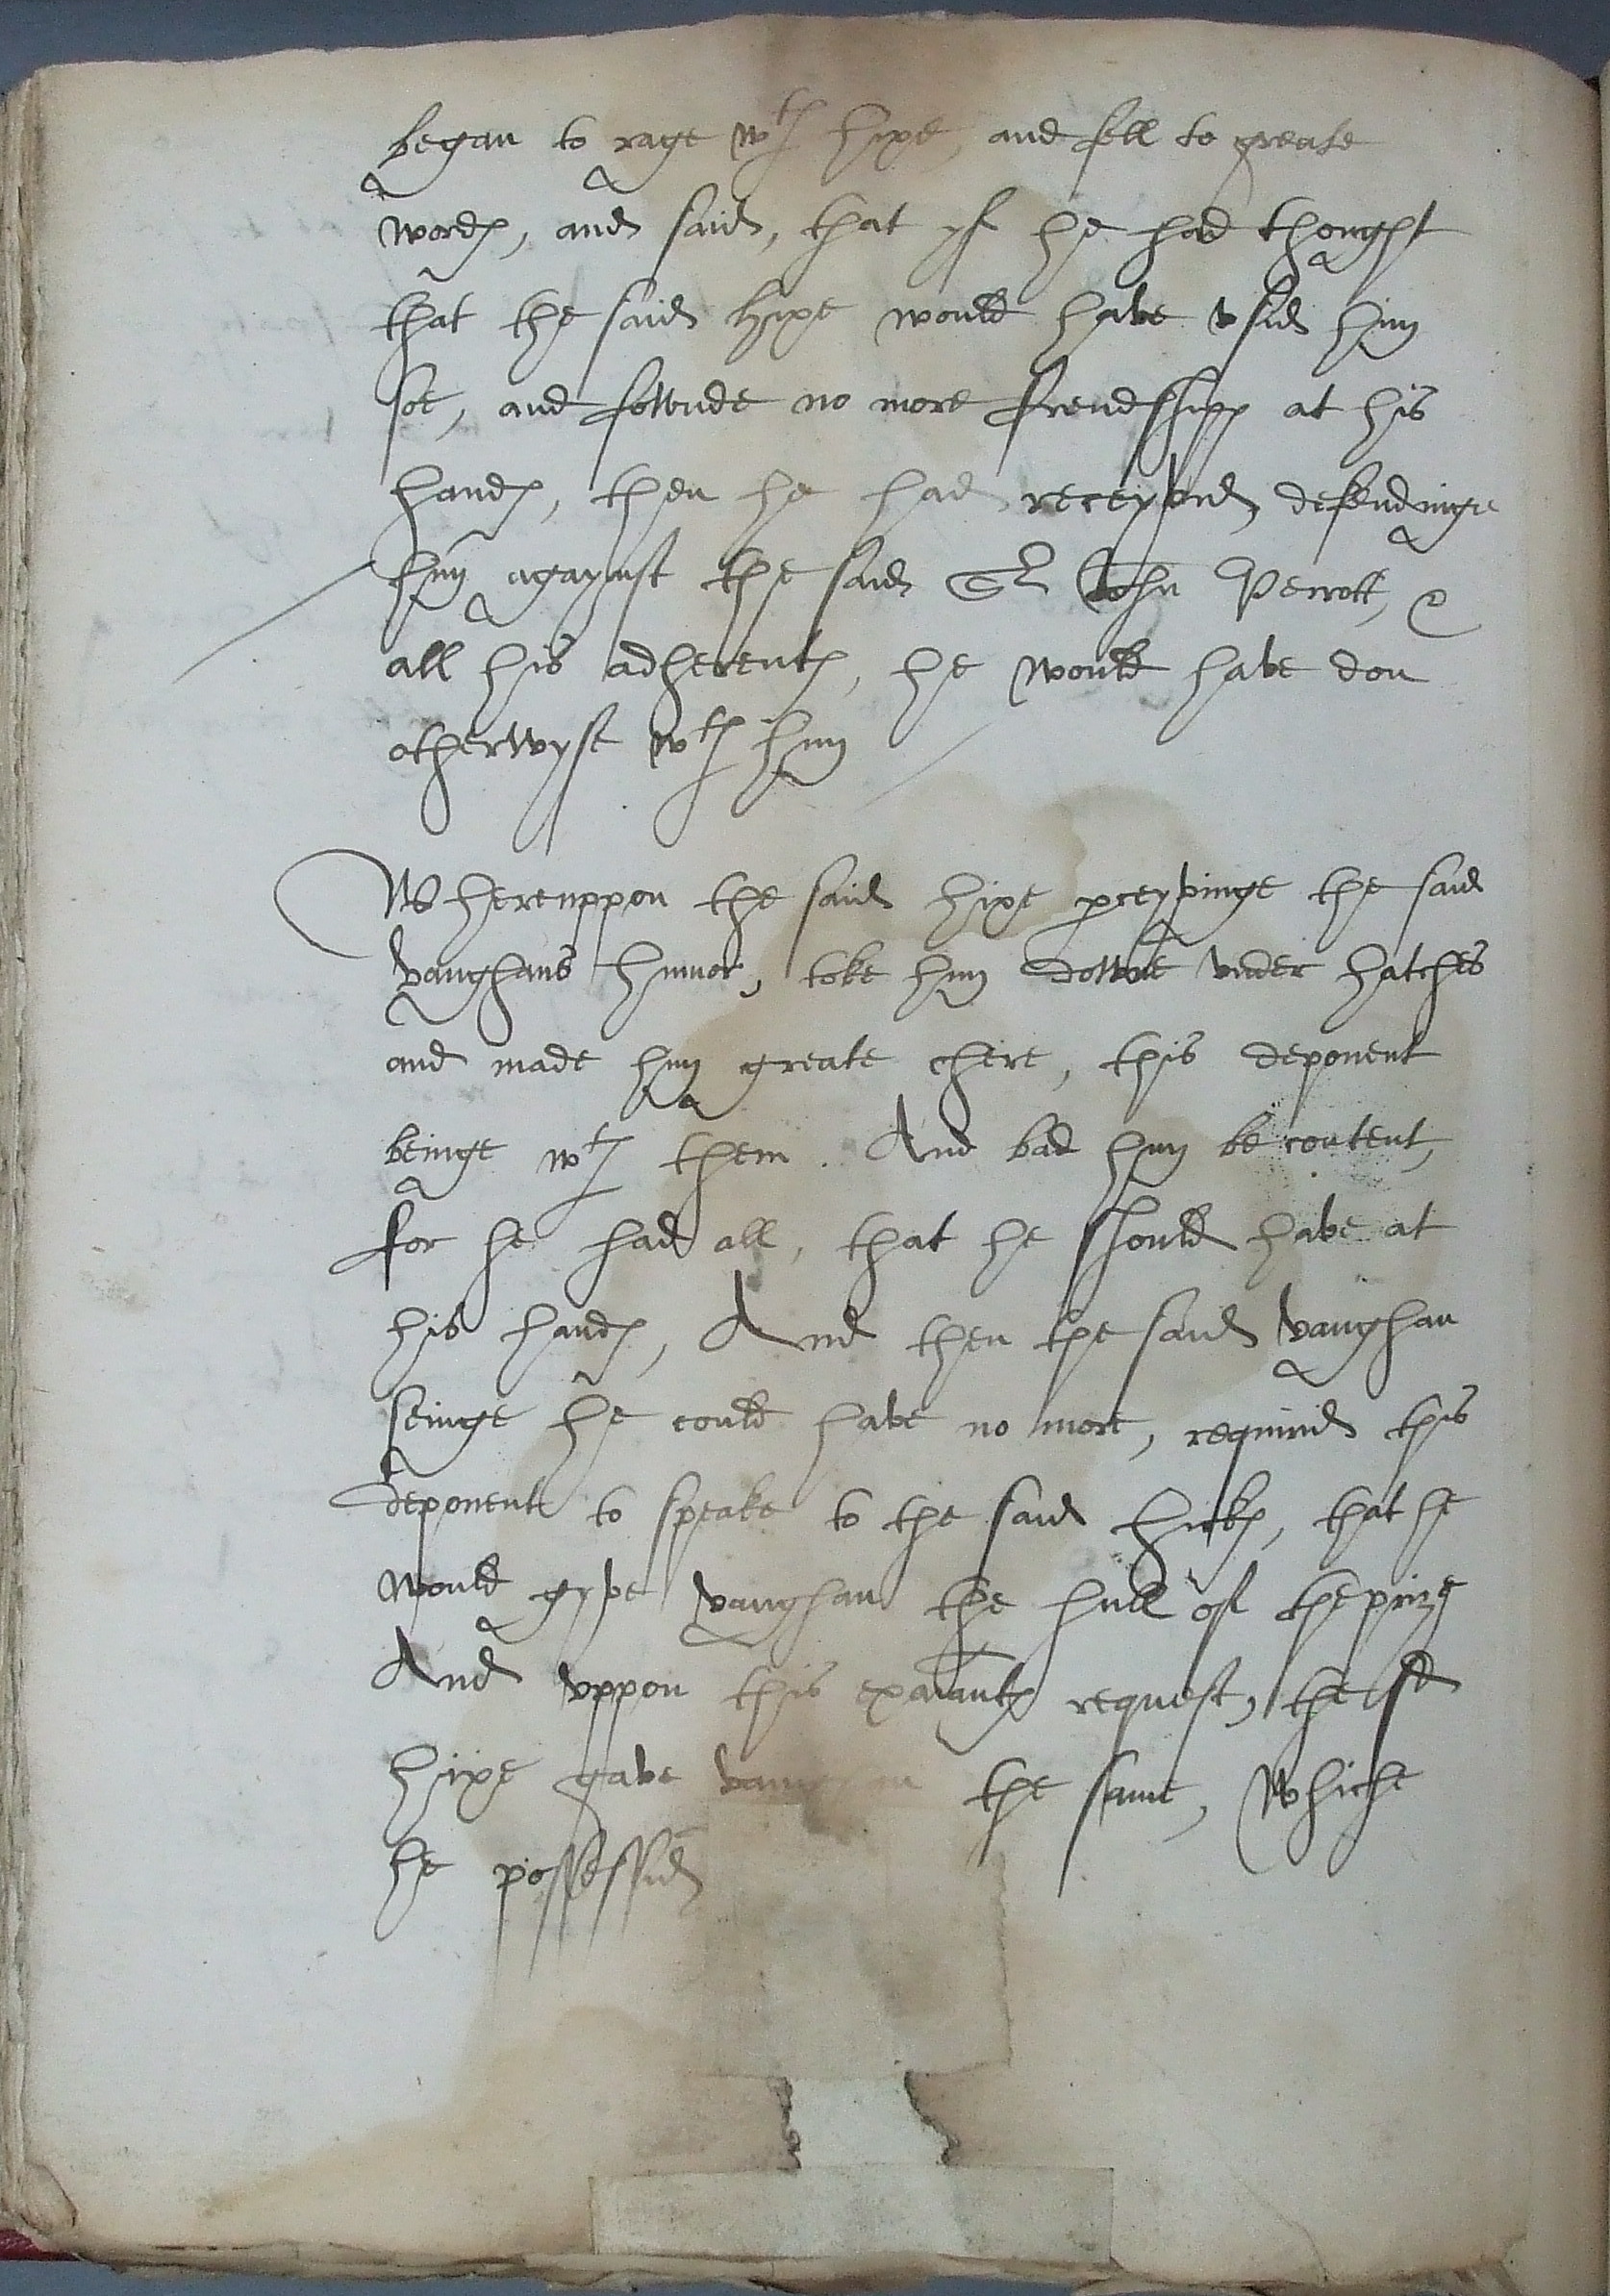 began to rage wth hixe, and fell to greate
wordes, and said, that yf he had thought
that the said hixe would have vsid him
soe, and fownde no more frendshipp at his
handes, then he had receyved, defendinge
him agaynst the said Sr John Perrott, &
all his adherentes, he would have don
otherwyse wth him
Whereuppon the said hixe perceyvinge the said
vaughans humor, toke him downe vnder hatches
and made him greate chere, this deponent
beinge wth them. And bad him be content,
for he had all, that he should have at
his handes, And then the said vaughan
seinge he could have no more, requirid this
deponent to speake to the said hickes, that he
would gyve vaughan the hull of the prize
And vppon this examinantes request, the sd
hixe gave vaughan the same, whiche
he possessid